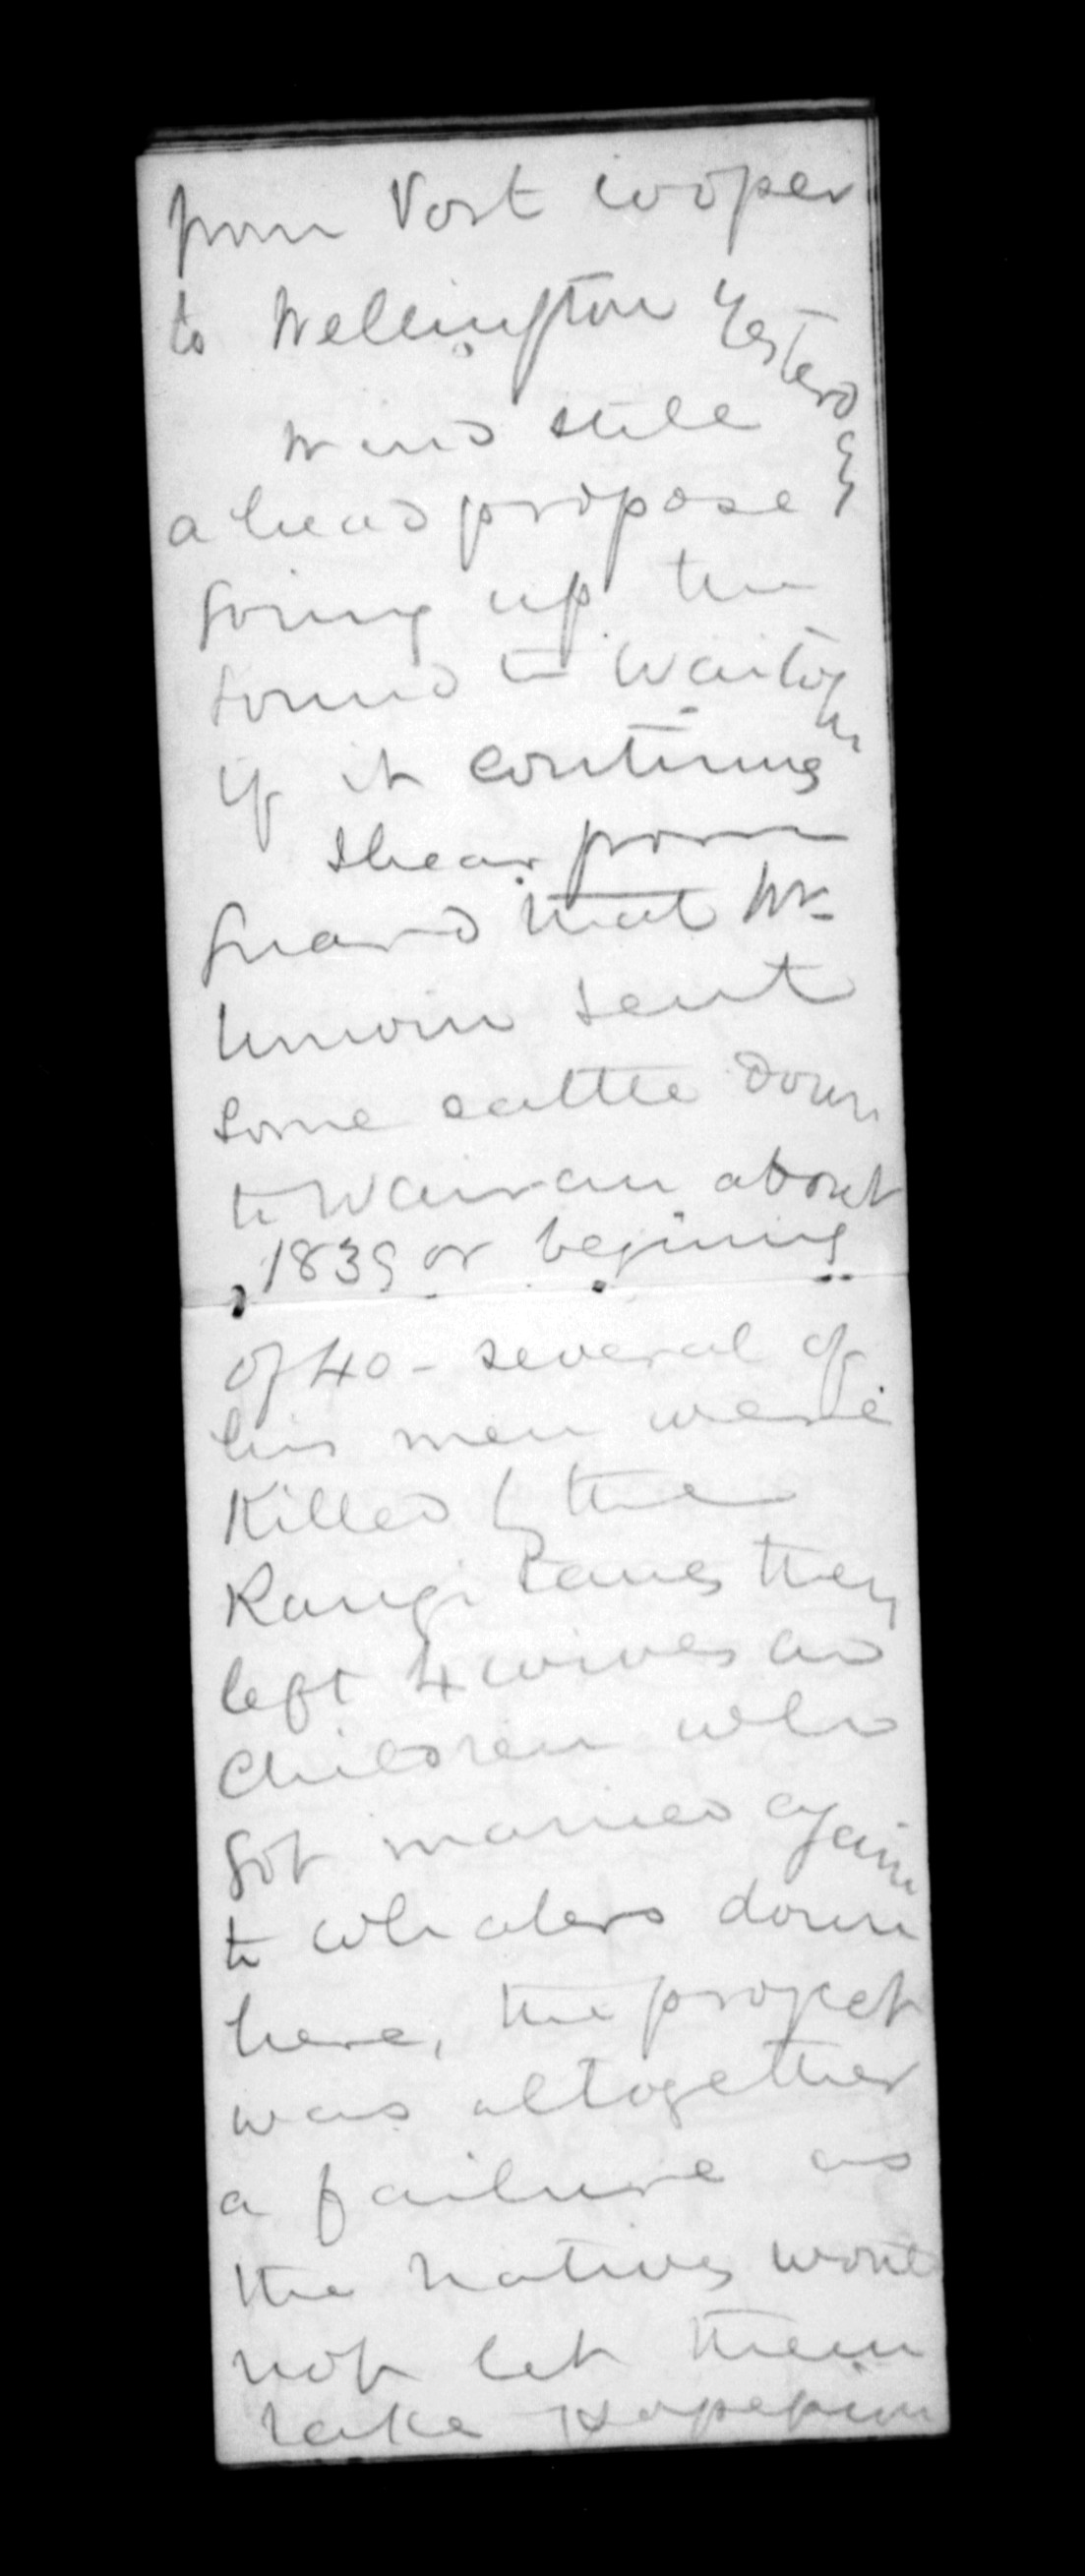 from Port Cooper
to Wellington yesterday
Wind still
ahead propose
going up the
sound to Waitohi
if it continues
I hear from
Guard that Mr
Unwin sent
some cattle down
to Wairau about
1839 or begining
of 40 - several of
his men were
Killed by the
Rangi tanes they
left 4 wives and
children who
got married again
to whalers down
here, the project
was altogether
a failure as
the natives would
not let them
take possession